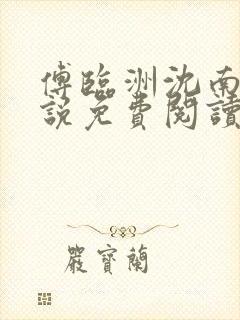 傅臨洲沈南
說免費閱讀
嚴寶蘭